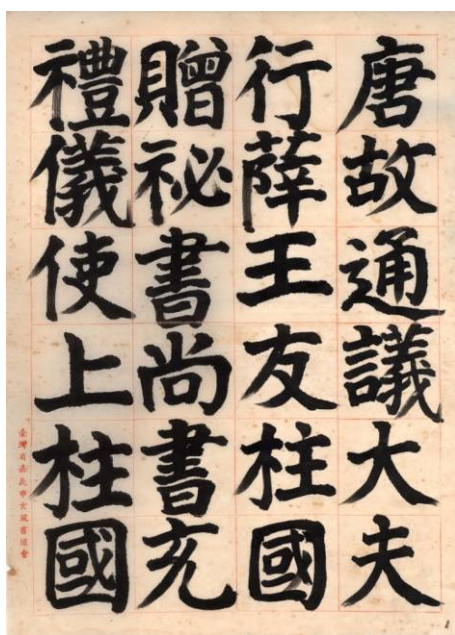 唐故通議大夫
行薛王友柱國
贈祕書尚書充
禮儀使上柱國
臺灣省嘉義市玄風書道會